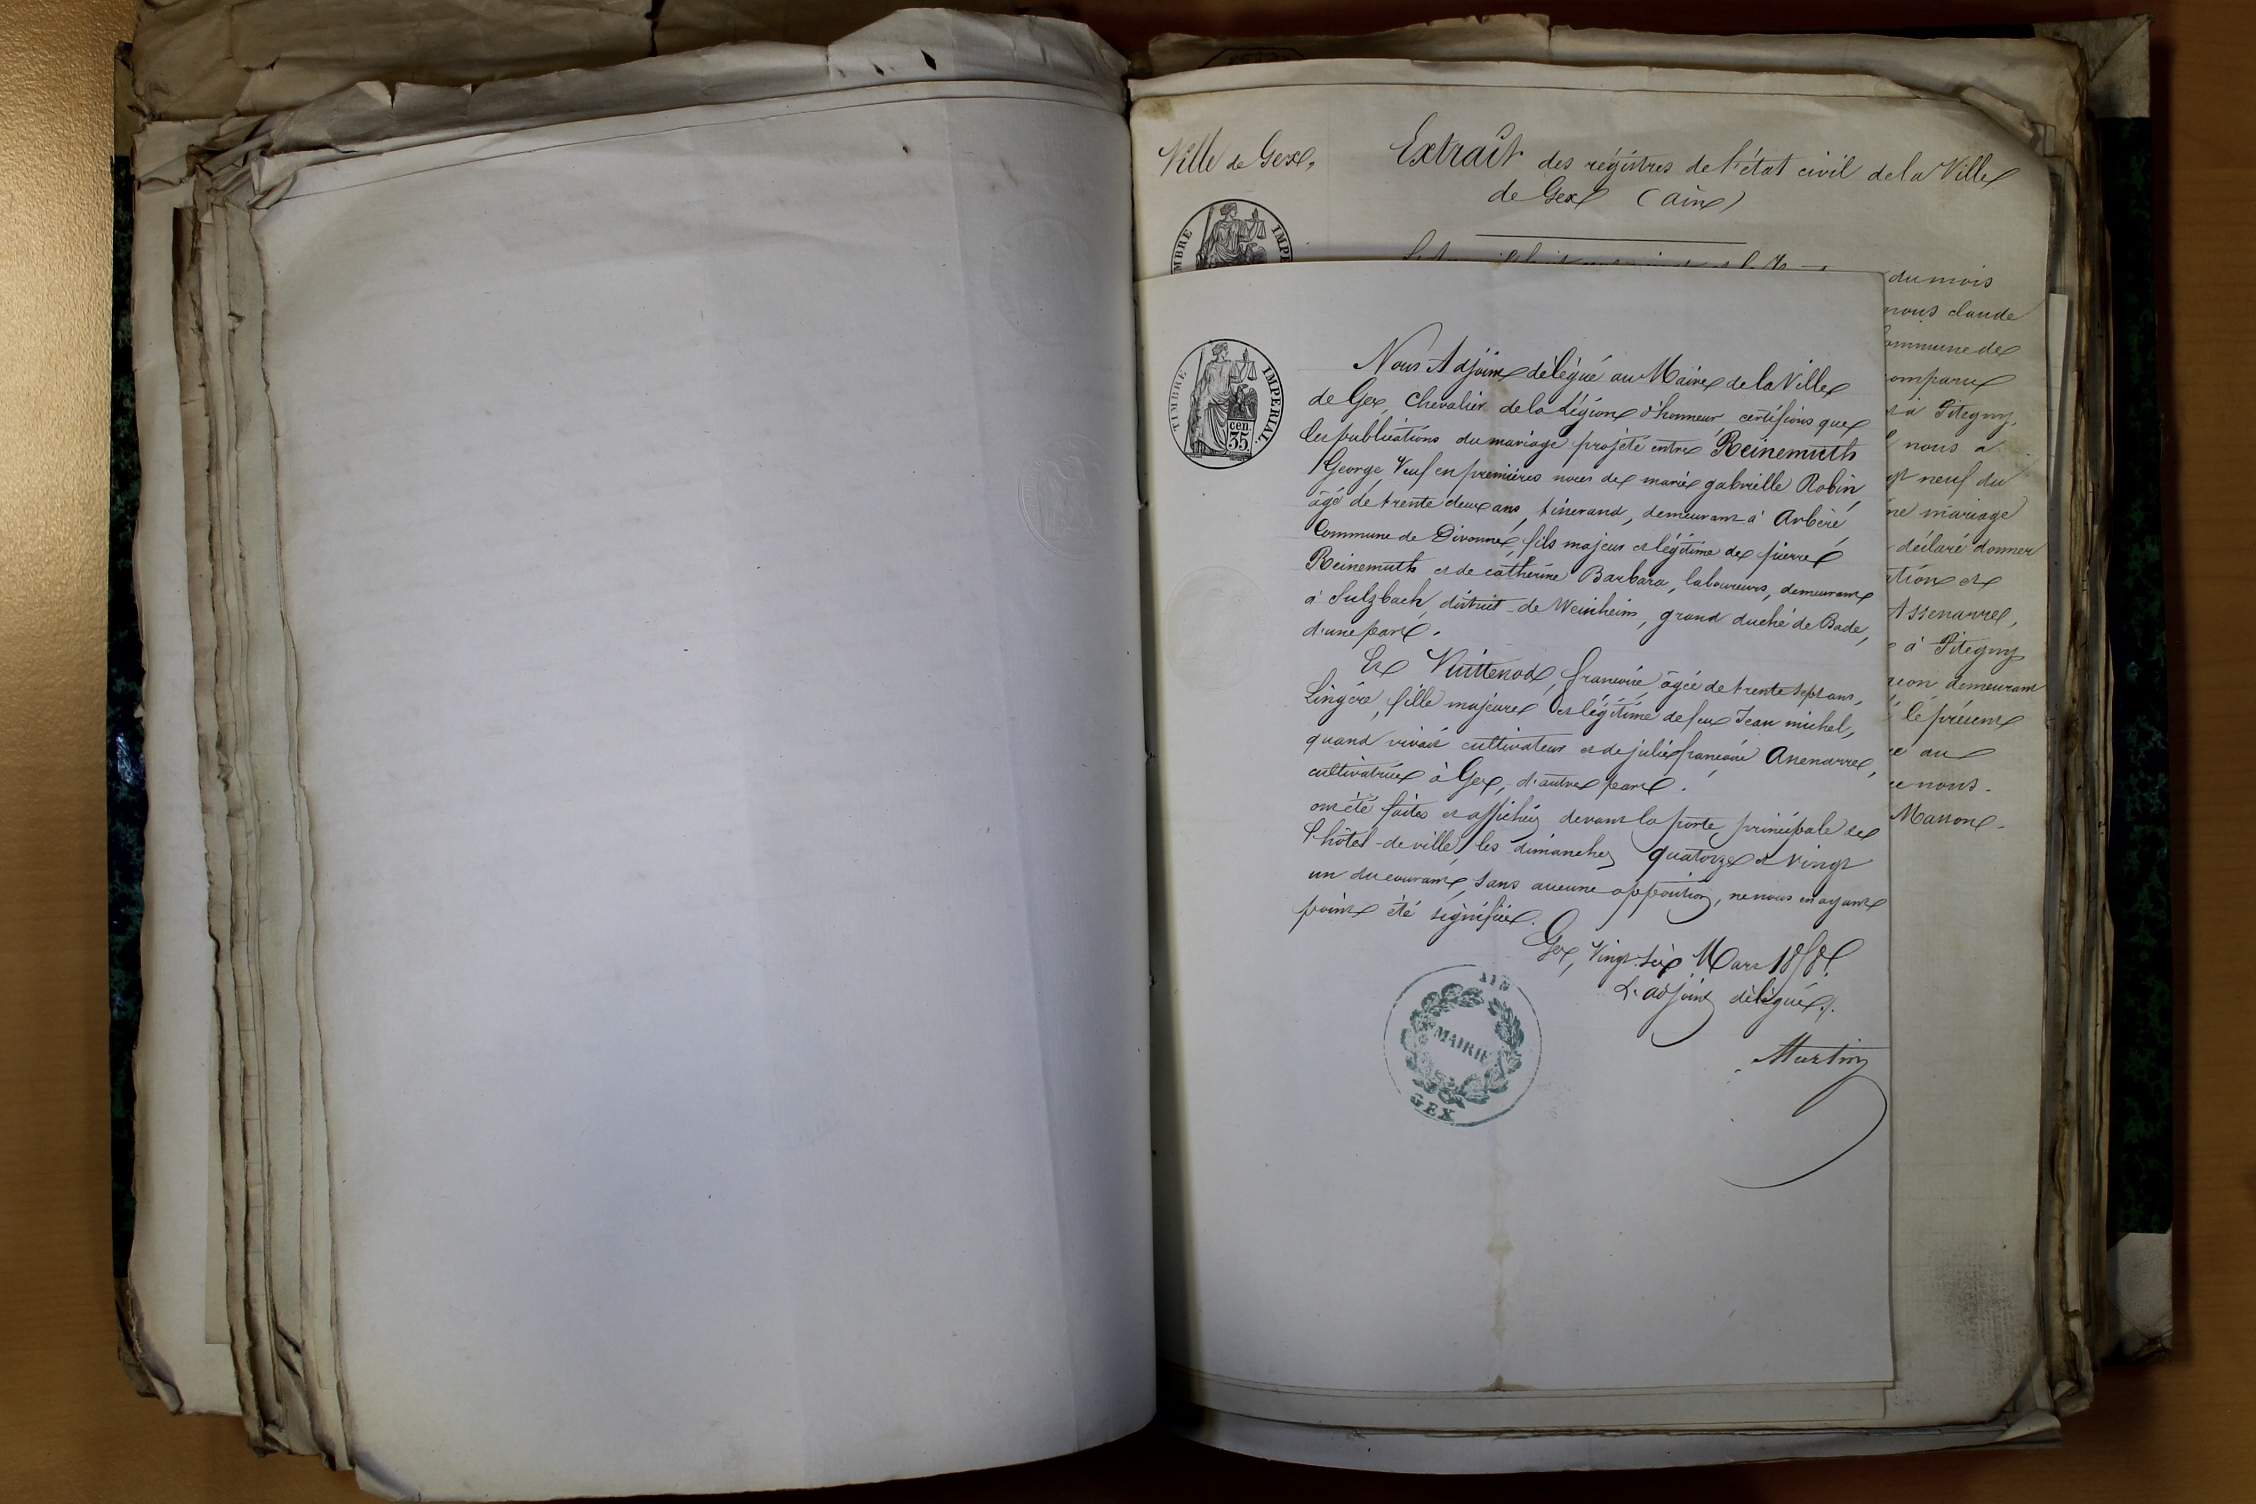 Ville de Gex,
Extrait des régistres de l'état civil de la Ville
de Gex (ain)
TIMBRE IMPERIAL
du mois
nous claude
commune de
comparu
à Pitegny,
nous a
neuf du
mariage
déclaré donner
Assenarre,
à Pitegny
demeurant
le présent
au
nous.
Masson.
TIMBRE IMPERIAL.
cen.
35.
Nous Adjoint délégué au Maire de la Ville
de Gex, Chevalier de la Légion d'honneur certifions que
les publications du mariage projeté entre Reinemuth
George, Veuf en premières noces de marie gabrielle Robin,
âgé de trente deux ans, tisserand, demeurant à Arbère
Commune de Divonne, fils majeur et légitime de pierre
Reinemuth et de catherine Barbara, laboureurs, demeurant
à Sulzbach, district de Weinheim, grand duché de Bade,
d'une part.
Et Vuittenod, francoise âgée de trente sept ans,
Lingère, fille majeure et légitime de feu Jean michel,
quand vivait cultivateur et de julie francoise Assenarre,
cultivatrice à Gex, d'autre part.
ont été faites et affichées devant la porte principale de
l'hôtel-de ville, les dimanches quatorze et vingt
un du courant, sans aucune opposition, ne nous en ayant
point été signifiée.
Gex, Vingt six Mars 1858.
L'adjoint délégué,
Martin
AIN
MAIRIE
GEX